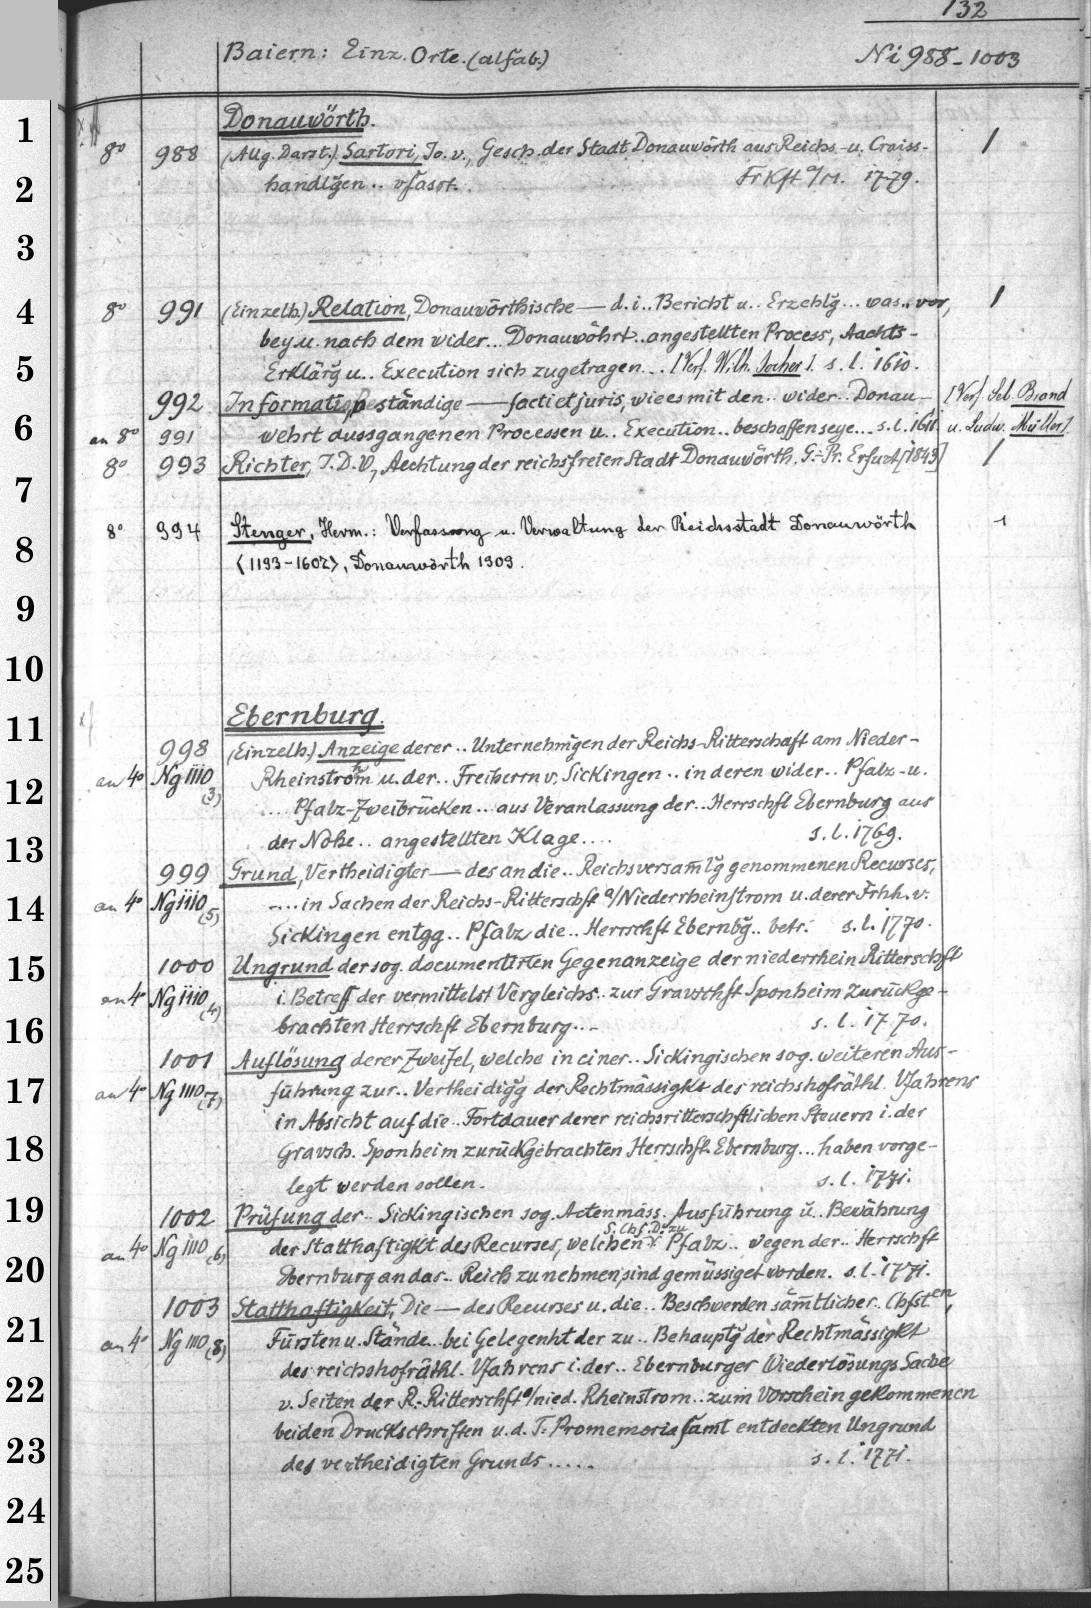 132
Baiern: Einz. Orte. (alfab.) Ni 988-1003
1
Donauwörth.
8° 988 (Allg. Darst.) Sartori, Jo. v., Gesch. der Stadt Donauwörth aus Reichs- u. Craiss- 1
2 handlg̃en .. vfasst. Frkft a/M. 1779.
3
4 8° 991 (Einzelh.) Relation, Donauwörthische — d. i.. Bericht u.. Erzehlg̃... was.. vor, 1
bey u. nach dem wider... Donauwöhrt.. angestellten Process, Aachts-
5 Erklärg̃ u.. Execution sich zugetragen... [Verf. Wilh. Jocher]. s. l. 1610.
992 Informatio, Beständige — facti et juris, wie es mit den.. wider.. Donau- [Verf. Seb. Brand
6 an 8° 991 wehrt aussgangenen Processen u.. Execution.. beschaffen seye... s. l. 1611. u. Ludw. Müller].
8° 993 Richter, T. D. V., Aechtung der reichsfreien Stadt Donauwörth. G.-Pr. Erfurt [1843] 1
7
8° 994 Stenger, Herm.: Verfassung u. Verwaltung der Reichsstadt Donauwörth 1
8 <1193-1607>, Donauwörth 1909.
9
10
11 Ebernburg.
998 (Einzelh.) Anzeige derer .. Unternehmg̃en der Reichs-Ritterschaft am Nieder-
12 an 4° Ng 1110 (3) Rheinstrohm u. der.. Freiherrn v. Sickingen .. in deren wider.. Pfalz- u.
.... Pfalz-Zweibrücken... aus Veranlassung der.. Herrschft Ebernburg aus
13 der Nohe.. angestellten Klage.... s. l. 1769.
999 Grund, Vertheidigter — des an die.. Reichsversam̃lg̃ genommenen Recurses,
14 an 4° Ng 1110 (5) .... in Sachen der Reichs-Ritterschft a/Niederrheinstrom u. derer Frhh. v.
Sickingen entgg.. Pfalz die.. Herrschft Ebernbg̃.. betr. s. l. 1770.
15 1000 Ungrund der sog. documentirten Gegenanzeige der niederrhein Ritterschft
an 4° Ng 1110 (4) i. Betreff der vermittelst Vergleichs.. zur Gravschft Sponheim zurückge-
16 brachten Herrschft Ebernburg... s. l. 1770.
1001 Auflösung derer Zweifel, welche in einer.. Sickingischen sog. weiteren Aus-
17 an 4° Ng 1110 (7) führung zur.. Vertheidig̃g der Rechtmässigkt des reichshofräthl. Vfahrens
in Absicht auf die.. Fortdauer derer reichsritterschftlichen Steuern i. der
18 Gravsch. Sponheim zurückgebrachten Herrschft Ebernburg... haben vorge-
legt werden sollen. s. l. 1771.
19 1002 Prüfung der.. Sickingischen sog. Actenmäss. Ausführung u.. Bewährung
S. Chf. D. zu
an 4° Ng 1110 (6) der Statthaftigkt des Recurses, welchen Pfalz.. wegen der.. Herrschft
20 Ebernburg an das.. Reich zu nehmen, sind gemüssiget worden. s. l. 1771.
1003 Statthaftigkeit, Die — des Recurses u. die.. Beschwerden säm̃tlicher.. Chfst.en,
21 an 4° Ng 1110 (8) Fürsten u. Stände.. bei Gelegenht der zu.. Behauptg̃ der Rechtmässigkt
des reichshofräthl. Vfahrens i. der.. Ebernburger Wiederlösungs Sache
22 v. Seiten der R.-Ritterschft a/nied. Rheinstrom.. zum Vorschein gekommenen
beiden Druckschriften u. d. T. Promemoria samt entdeckten Ungrund
23 des vertheidigten Grunds ..... s. l. 1771.
24
25